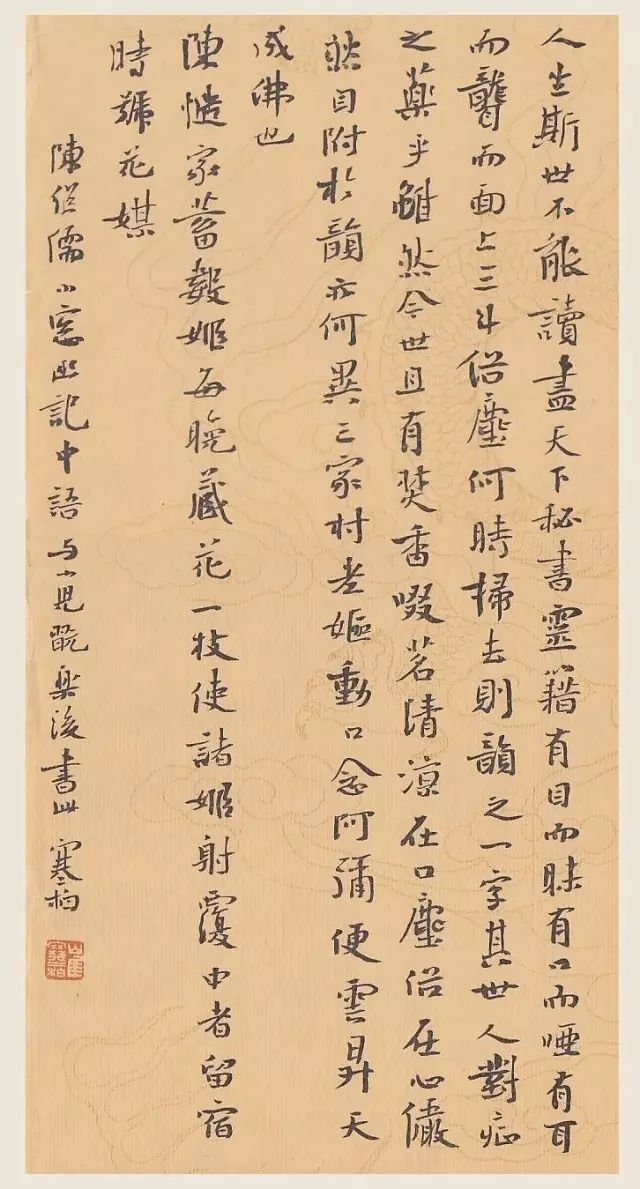 人生斯世不能讀盡天下秘書靈籍有目而昧有口而啞有耳
而聾而面上三斗俗塵何時掃去則韻之一字其世人對症
之藥乎雖然今世且有焚香啜茗清涼在口塵俗在心儼
然自附於韻亦何異三家村老嫗動口念阿彌便雲昇天
成佛也
陳慥家蓄數姬每晚藏花一枝使諸姬射覆中者留宿
時號花媒
陳继儒小窓幽記中語与小児翫樂後書此 寒柏